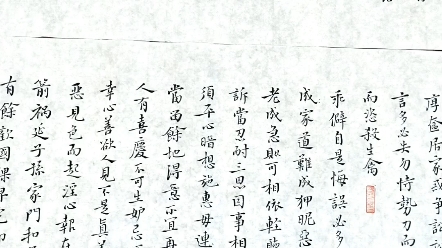 厚奩居家戒爭訟
言多必失勿恃勢力而
而恣殺生禽
乖僻自是悔誤必多
成家道難成狎昵惡
老成急則可相依輕聽
訴當忍耐三思因事相
須平心暗想施惠毋
當留餘地得意不宜再
人有喜慶不可生妒忌
幸心善欲人見不是真
惡見色而起淫心報在
箭禍延子孫家門和
有餘歡國課早完